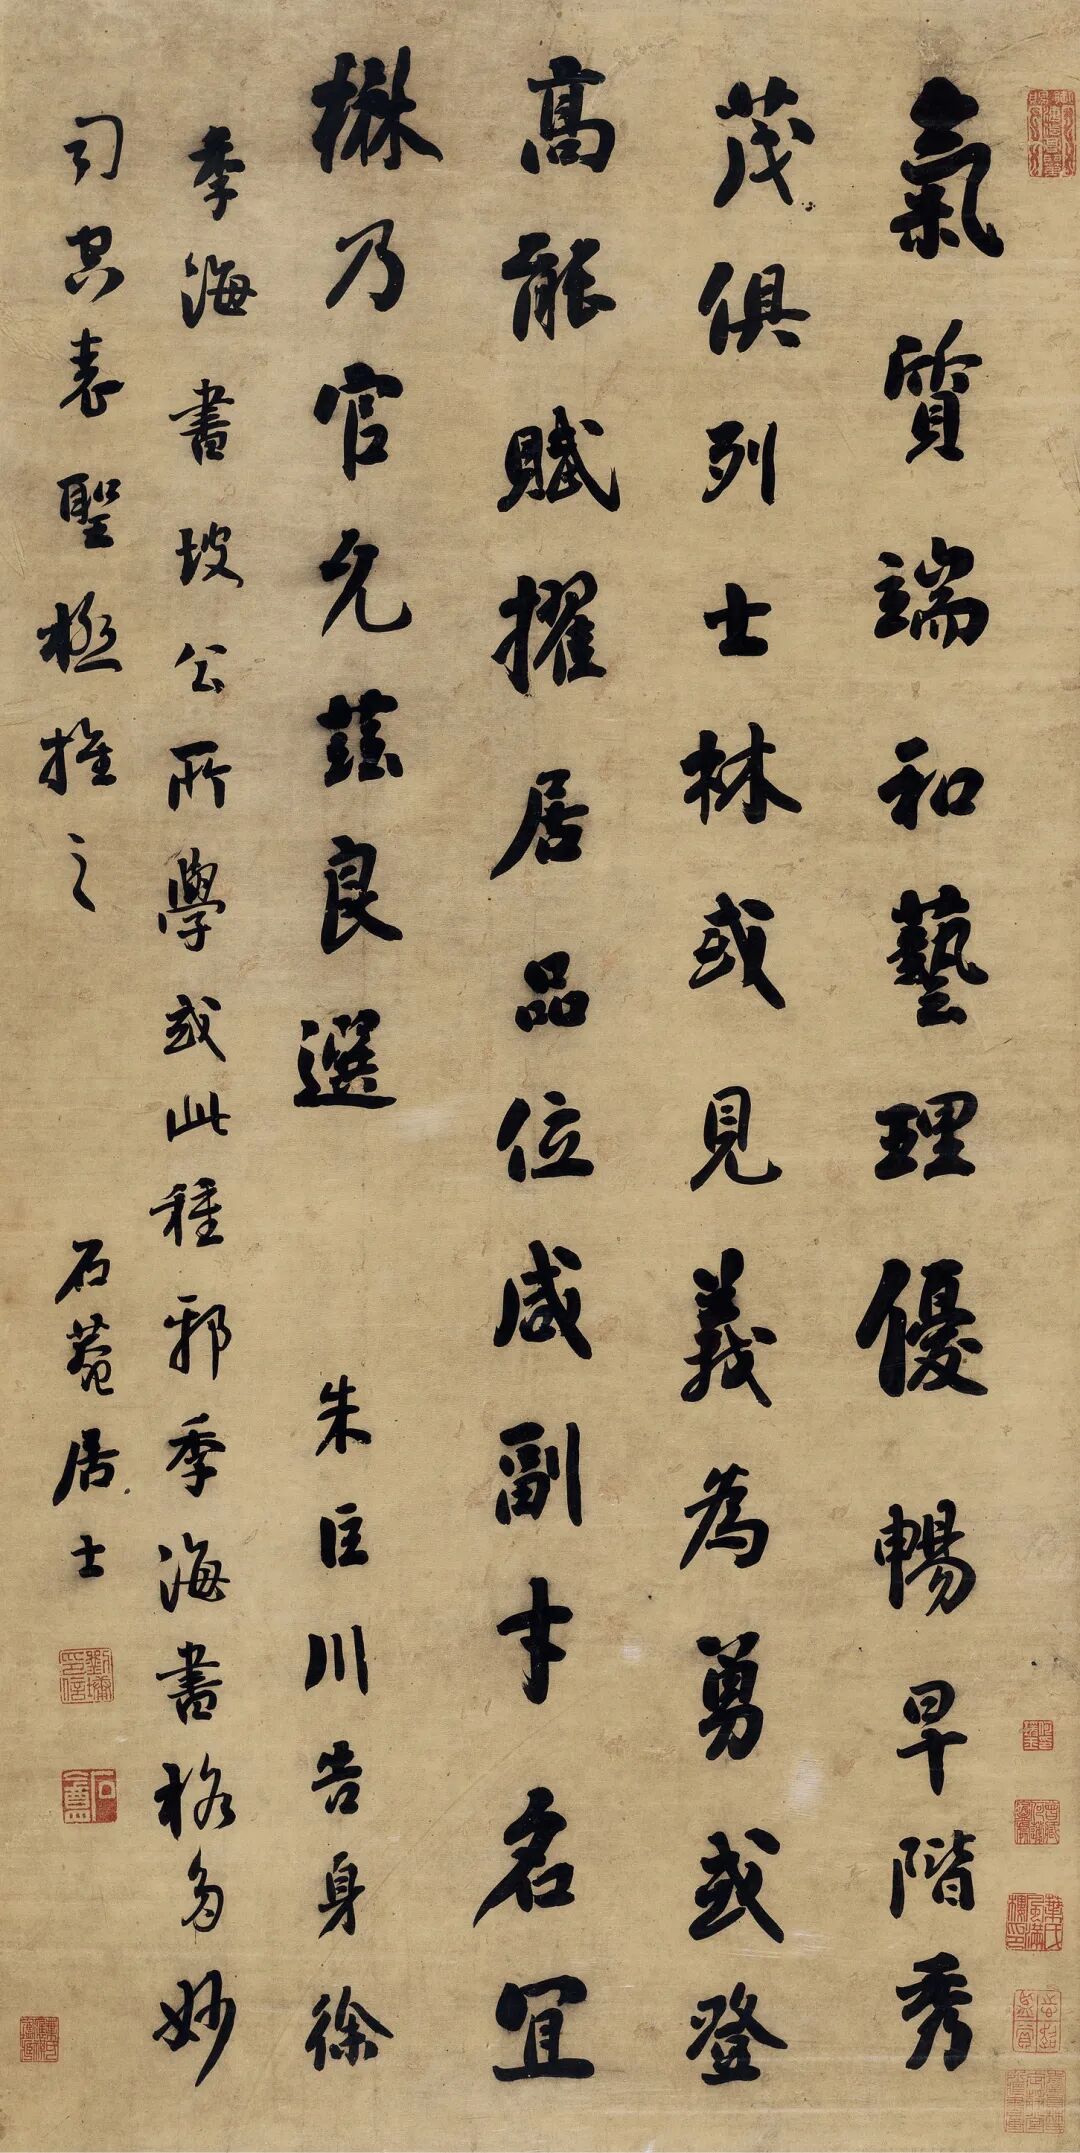 氣質端和藝理優暢早階秀
茂俱列士林或見義為勇或登
高能賦擢居品位咸副才名宜
楙乃官允茲良選　朱巨川告身徐
季海書坡公所學或此種邪季海書格多妙
司空表聖極推之　石菴居士
劉墉印信
石菴